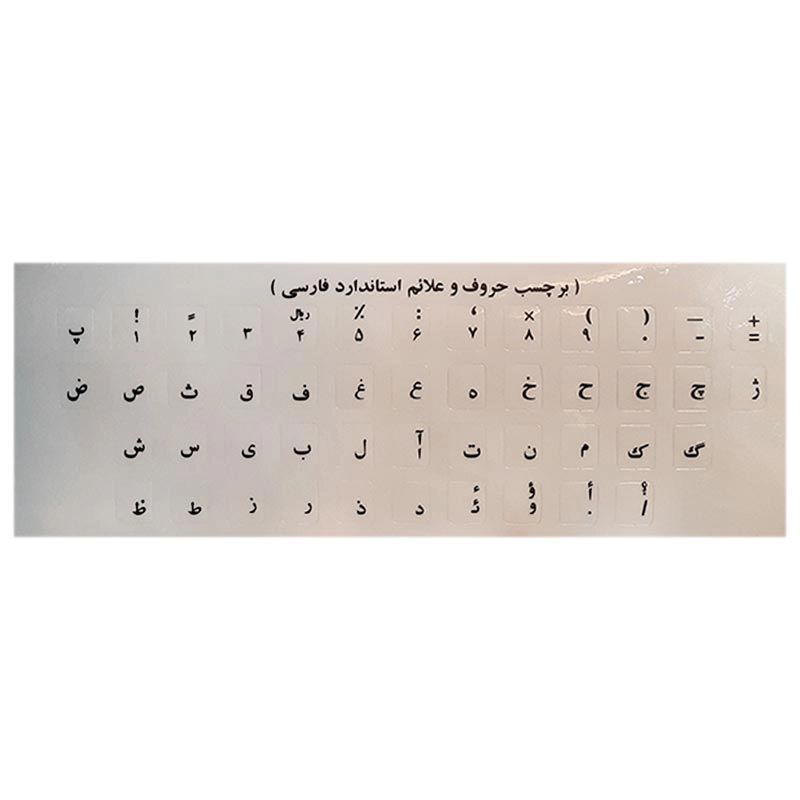 ( برچسب حروف و علائم استاندارد فارسی )
! = ریال ٪ : ، × ) ( — +
پ ۱ ۲ ۳ ۴ ۵ ۶ ۷ ۸ ۹ . - =
ض ص ث ق ف غ ع ه خ ح ج چ ژ
آ
ش س ی ب ل ا ت ن م ک گ
ء ؤ أ ؟
ظ ط ز ر ذ د ئ و . /